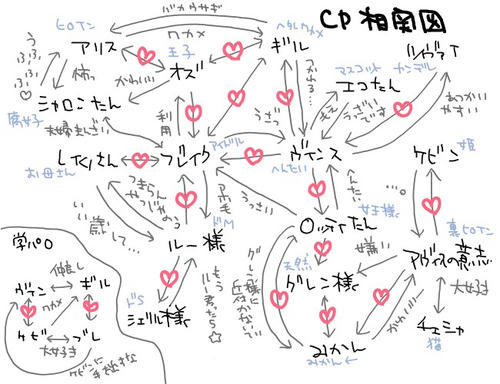 CP相関図
バカウサギ
ヒロイン
アリス
ワカメ
ヘタレワカメ
ギル
王子
オズ
うふふふふ♡
怖っ
かわいい
シャロンたん
腐女子
夫婦まんざい
利用
うざっ
つかれる…
マスコット
エコたん
うざいうっです
ええ
カンデル
あつかいやすい
レイムさん
お母さん
アイドル
ブレイク
ヴィンス
へんたい
ケビン
姫
…。
つきらんやっじゃのう
いい歳して…
うっさい
へんたい
ロッティたん
女王様
ドM
ルー様
もうルー君たら☆
ドS
シェリル様
グレン様に近付かないで
天然
グレン様
嫌い
裏ヒロイン
アヴィスの意志
大好き
チェシャ
猫
かわいい
みかん
みかん←
学パロ
ヴィン
仲良し
ギル
ワカメ
ケビ
大好き
ブレ
ケビンに手を出すな